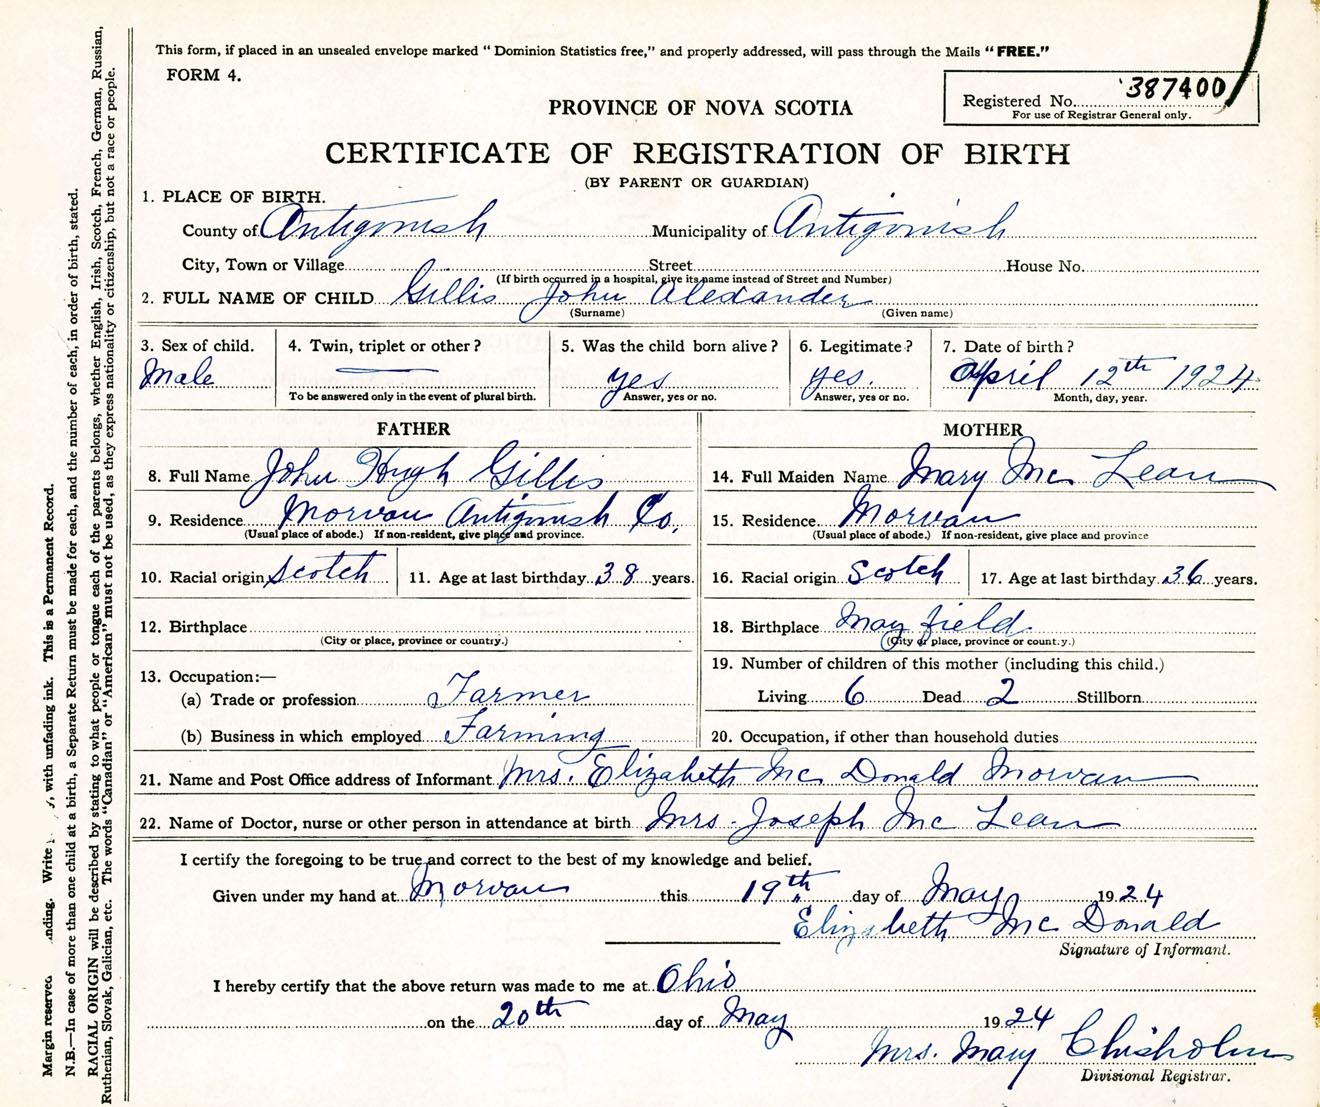 This form, if placed in an unsealed envelope marked "Dominion Statistics free," and properly addressed, will pass through the Mails "FREE."
FORM 4.
Registered No. 387400
For use of Registrar General only.
PROVINCE OF NOVA SCOTIA
CERTIFICATE OF REGISTRATION OF BIRTH
(BY PARENT OR GUARDIAN)
1. PLACE OF BIRTH.
County of Antigonish Municipality of Antigonish
City, Town or Village Street House No.
(If birth occurred in a hospital, give its name instead of Street and Number)
2. FULL NAME OF CHILD Gillis John Alexander
(Surname) (Given name)
3. Sex of child. 4. Twin, triplet or other? 5. Was the child born alive? 6. Legitimate? 7. Date of birth?
Male — yes yes. April 12th 1924
To be answered only in the event of plural birth. Answer, yes or no. Answer, yes or no. Month, day, year.
FATHER MOTHER
8. Full Name John Hugh Gillis 14. Full Maiden Name Mary Mc Lean
9. Residence Morvan Antigonish Co. 15. Residence Morvan
(Usual place of abode.) If non-resident, give place and province. (Usual place of abode.) If non-resident, give place and province
10. Racial origin Scotch 11. Age at last birthday 38 years. 16. Racial origin Scotch 17. Age at last birthday 36 years.
12. Birthplace 18. Birthplace May field
(City or place, province or country.) (City or place, province or country.)
13. Occupation:— 19. Number of children of this mother (including this child.)
(a) Trade or profession Farmer Living 6 Dead 2 Stillborn
(b) Business in which employed Farming 20. Occupation, if other than household duties
21. Name and Post Office address of Informant Mrs. Elizabeth Mc Donald Morvan
22. Name of Doctor, nurse or other person in attendance at birth Mrs. Joseph Mc Lean
I certify the foregoing to be true and correct to the best of my knowledge and belief.
Given under my hand at Morvan this 19th day of May 1924
Elizabeth Mc Donald
Signature of Informant.
I hereby certify that the above return was made to me at Ohio
on the 20th day of May 1924
Mrs. Mary Chisholm
Divisional Registrar.
Margin reserved nding. Write with unfading ink. This is a Permanent Record.
N.B.—In case of more than one child at a birth, a Separate Return must be made for each, and the number of each, in order of birth, stated.
RACIAL ORIGIN will be described by stating to what people or tongue each of the parents belongs, whether English, Irish, Scotch, French, German, Russian,
Ruthenian, Slovak, Galician, etc. The words "Canadian" or "American" must not be used, as they express nationality or citizenship, but not a race or people.